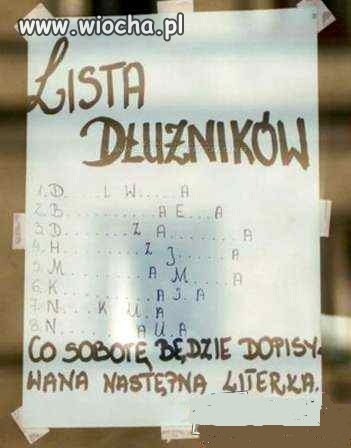 www.wiocha.pl
LISTA
DŁUŻNIKÓW
1. D....L W.....A
2. B..........A E...A
3. D........Z A.........A
4. H..........Z J.....A
5. M..........A M....A
6. K...........A J A
7. N....K U A
8. N..........A U A
CO SOBOTĘ BĘDZIE DOPISY-
WANA NASTĘPNA LITERKA.